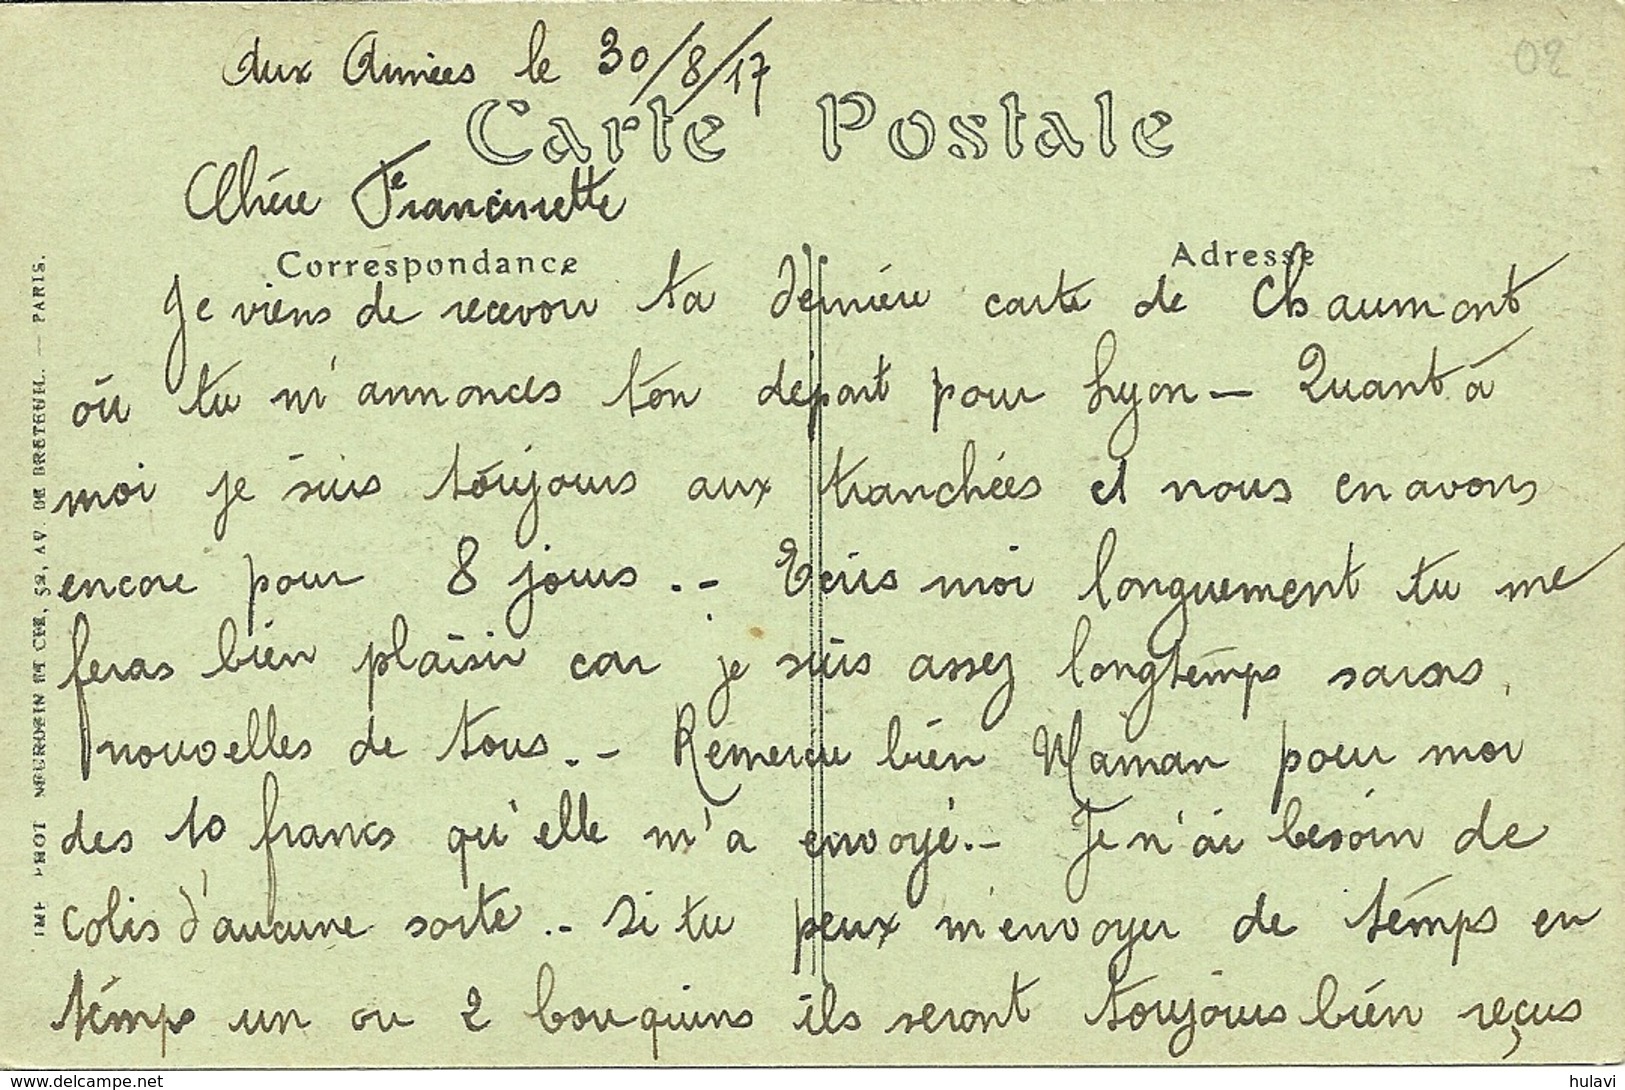 Aux Armées le 30/8/17
02
Carte Postale
Chère Francinette
Correspondance
Adresse
Je viens de recevoir ta dernière carte de Chaumont
où tu m'annonces ton départ pour Lyon - Quant à
moi je suis toujours aux tranchées et nous en avons
encore pour 8 jours. - Ecris moi longuement tu me
feras bien plaisir car je suis assez longtemps sans
nouvelles de tous. - Remercie bien Maman pour moi
des 10 francs qu'elle m'a envoyé. - Je n'ai besoin de
colis d'aucune sorte. - Si tu peux m'envoyer de temps en
temps un ou 2 bouquins ils seront toujours bien reçus
IMP. PHOT. NEURDEIN ET CIE, 52, AV. DE BRETEUIL. — PARIS.
www.delcampe.net
hulavi